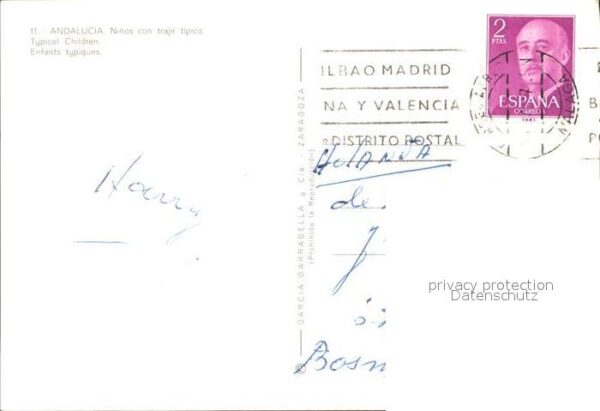 11. - ANDALUCIA. Niños con traje típico.
Typical Children.
Enfants typiques.
2
PTAS
ESPAÑA
CORREOS
ILBAO MADRID
NA Y VALENCIA
DISTRITO POSTAL
MALAGA
GARCIA GARRABELLA y Cía. - ZARAGOZA
(Prohibida la Reproducción)
Harry
HOLANDA
de
Bosm
privacy protection
Datenschutz